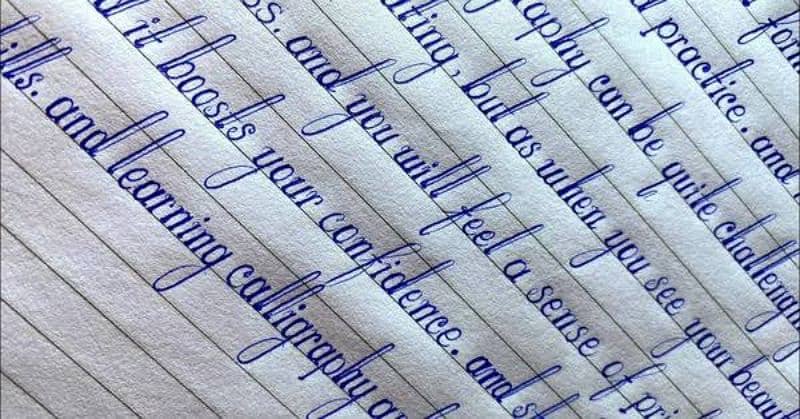 practice. and
graphy can be quite challenging
but as when you see your
ss. and you will feel a sense of
it boosts your confidence. and
ills. and learning calligraphy